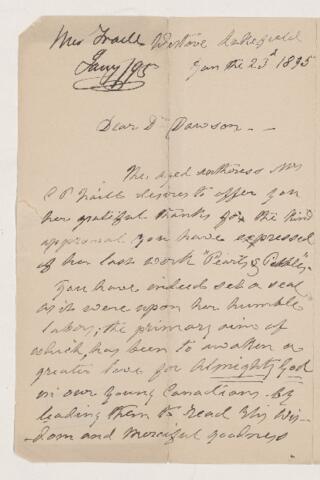 Mrs Traill Westove Lakefield
Jany/95 Jan the 23d 1895
Dear Dr Dawson. —
The aged authoress Mrs
C P Traill desires to offer you
her grateful thanks for the kind
approval you have expressed
of her last work "Pearls & Pebbles".
You have indeed set a seal
as it were upon her humble
labor; the primary aim of
which has been to awaken a
greater love for Almighty God
in our young Canadians by
leading them to read His Wis-
-dom and merciful goodness